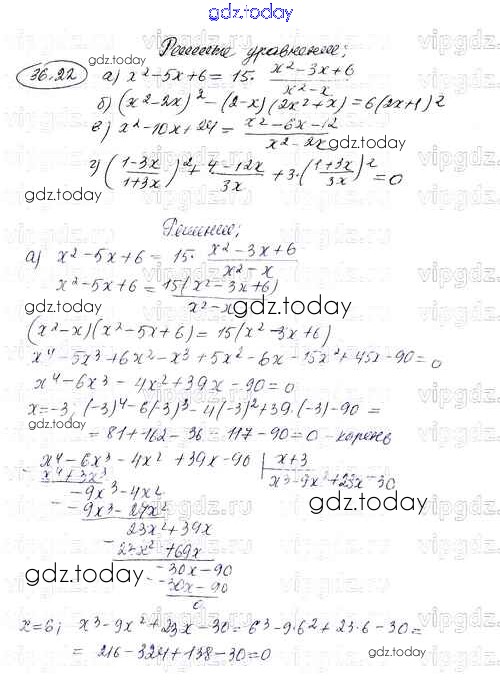 gdz.today
Решите уравнение;
gdz.today
36.22 а) x² - 5x + 6 = 15 · (x² - 3x + 6)/(x² - x)
б) (x² - 2x)² - (2 - x)(2x² + x) = 6(2x + 1)²
в) x² - 10x + 24 = (x² - 6x - 12)/(x² - 2x)
г) ((1 - 3x)/(1 + 3x))² + (4 - 12x)/3x + 3 · ((1 + 3x)/3x)² = 0
gdz.today
Решение;
а) x² - 5x + 6 = 15 · (x² - 3x + 6)/(x² - x)
x² - 5x + 6 = 15(x² - 3x + 6)/(x² - x)
gdz.today
(x² - x)(x² - 5x + 6) = 15(x² - 3x + 6)
x⁴ - 5x³ + 6x² - x³ + 5x² - 6x - 15x² + 45x - 90 = 0
gdz.today
x⁴ - 6x³ - 4x² + 39x - 90 = 0
x = -3, (-3)⁴ - 6(-3)³ - 4(-3)² + 39·(-3) - 90 =
= 81 + 162 - 36 - 117 - 90 = 0 - корень
x⁴ - 6x³ - 4x² + 39x - 90 | x + 3
x⁴ + 3x³ x³ - 9x² + 23x - 30
-9x³ - 4x²
gdz.today
-9x³ - 27x²
23x² + 39x
23x² + 69x
gdz.today
-30x - 90
-30x - 90
0
x = 6; x³ - 9x² + 23x - 30 = 6³ - 9·6² + 23·6 - 30 =
= 216 - 324 + 138 - 30 = 0
gdz.today
gdz.today